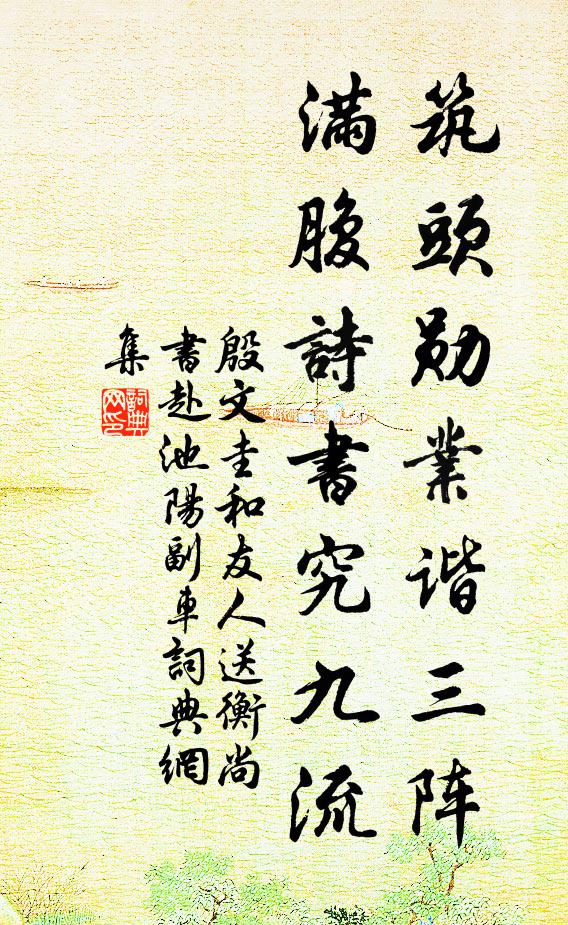 筑頭勋業谐三阵
滿腹詩書究九流
殷文圭和友人送衡尚
書赴池陽副車詞典網
集
詞典
网印